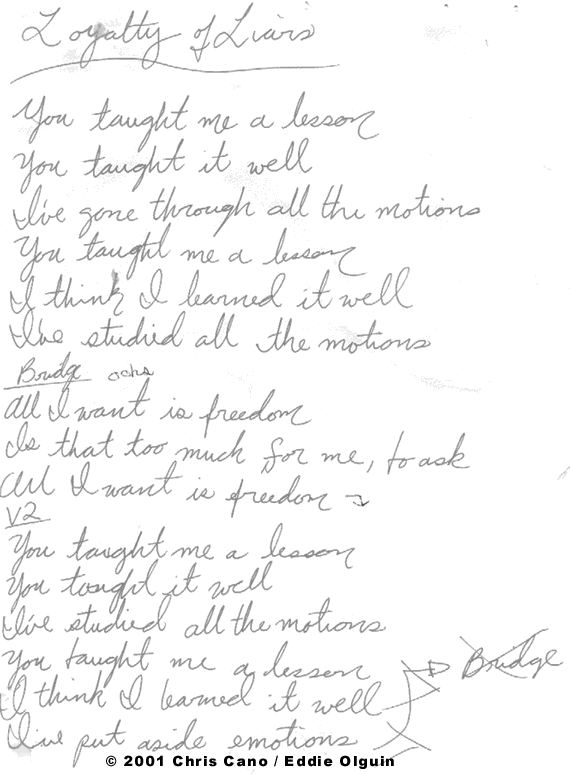 Loyalty of Liars
You taught me a lesson
You taught it well
I've gone through all the motions
You taught me a lesson
I think I learned it well
I've studied all the motions
Bridge
All I want is freedom
Is that too much for me, to ask
All I want is freedom
V2
You taught me a lesson
You taught it well
I've studied all the motions
You taught me a lesson
Bridge
I think I learned it well
I've put aside emotions
© 2001 Chris Cano / Eddie Olguin